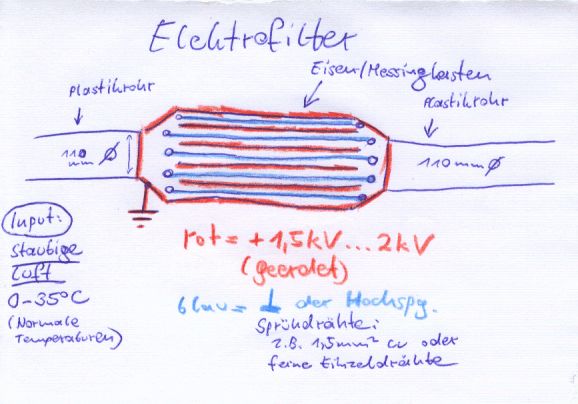 Elektrofilter
Eisen/Messingkasten
Plastikrohr
Plastikrohr
110 mm Ø
110mm Ø
Input:
staubige
Luft
0-35°C
(Normale
Temperaturen)
rot = +1,5kV...2kV
(geerdet)
blau = ⊥ der Hochspg.
Sprühdrähte:
z.B. 1,5mm² cu oder
feine Einzeldrähte